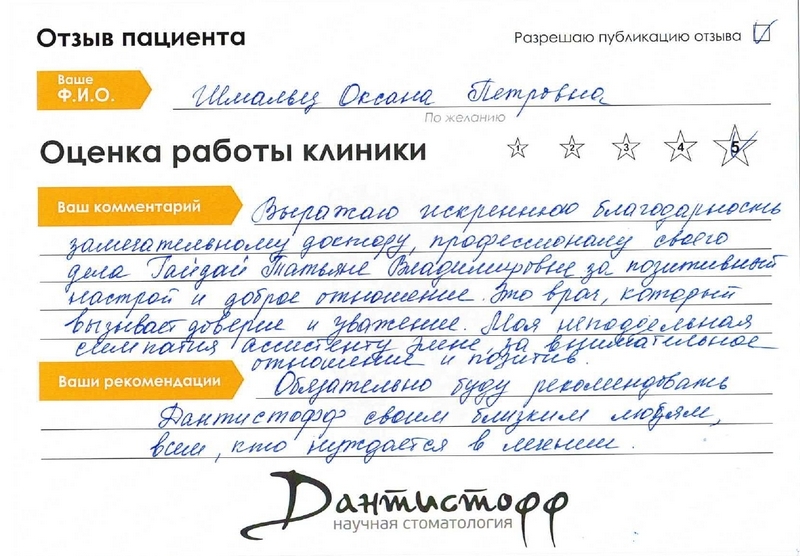 Отзыв пациента
Разрешаю публикацию отзыва
Ваше
Ф.И.О.
Шмальц Оксана Петровна
По желанию
Оценка работы клиники
1 2 3 4 5
Ваш комментарий
Выражаю искреннюю благодарность
замечательному доктору, профессионалу своего
дела Гайдай Татьяне Владимировне за позитивный
настрой и доброе отношение. Это врач, который
вызывает доверие и уважение. Моя неподдельная
симпатия ассистенту Элине, за внимательное
отношение и позитив.
Ваши рекомендации
Обязательно буду рекомендовать
Дантистофф своим близким людям,
всем, кто нуждается в лечении.
Дантистофф
научная стоматология